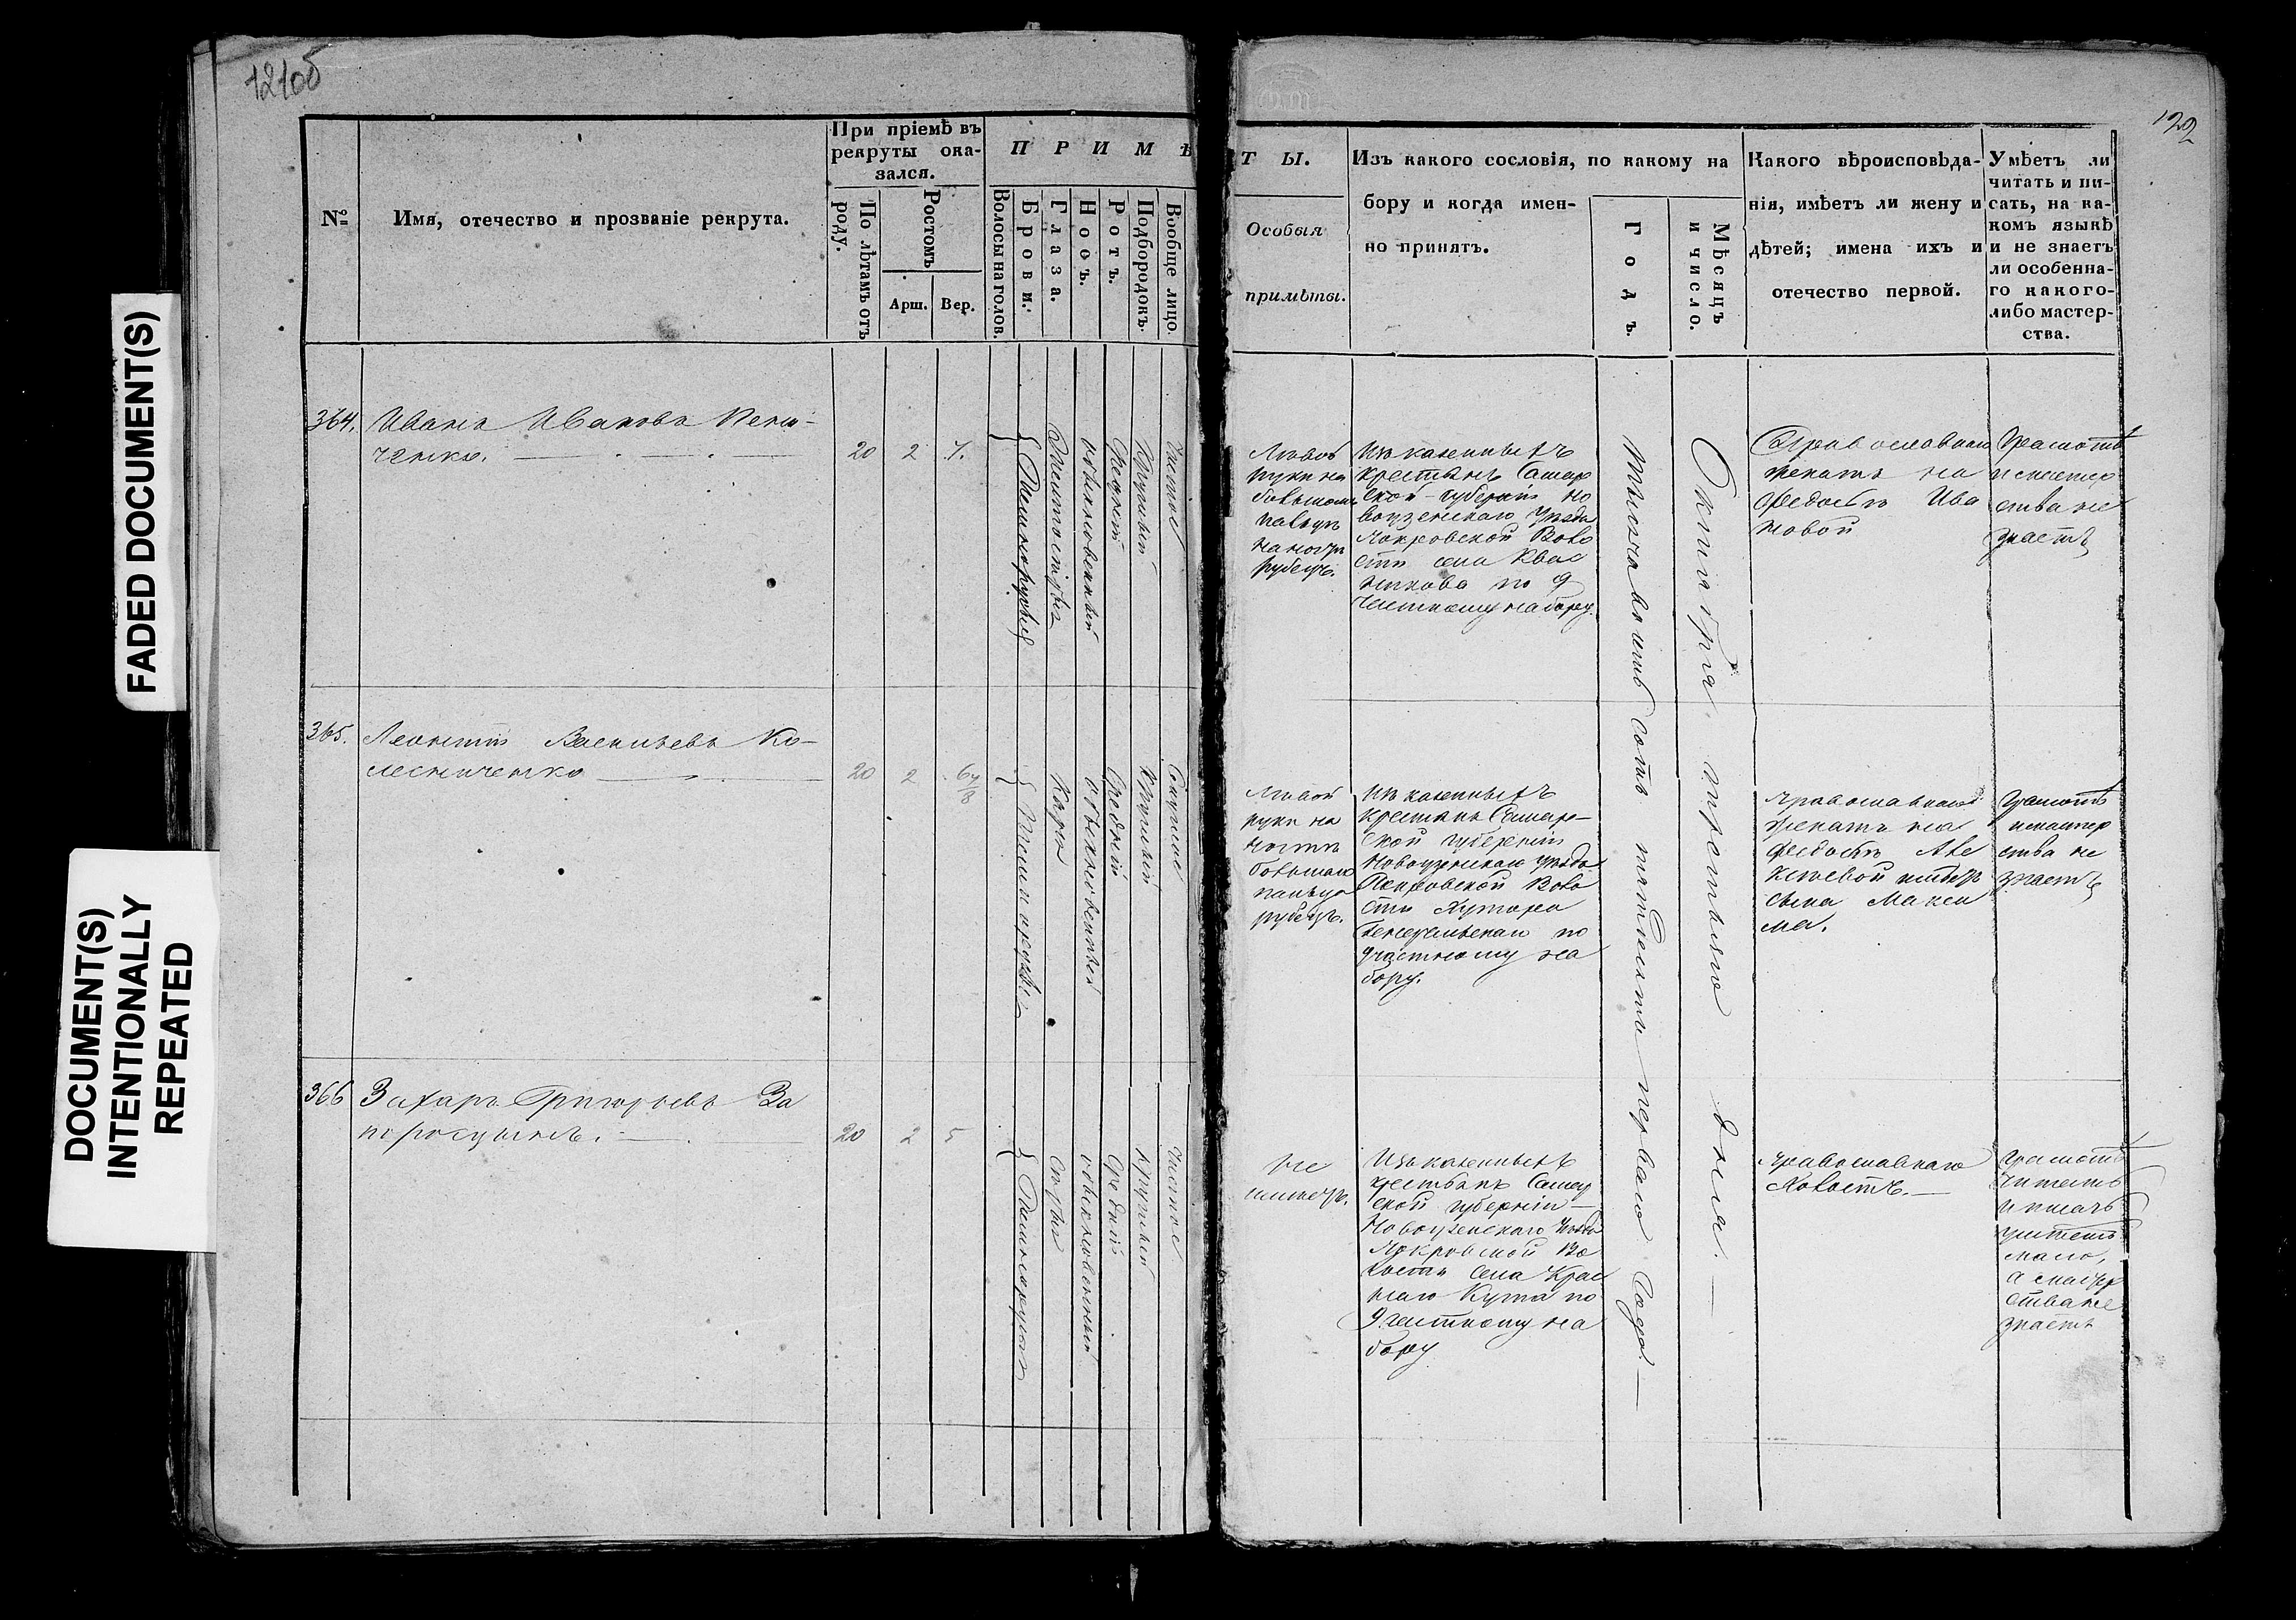 FADED DOCUMENT(S)
DOCUMENT(S)
INTENTIONALLY
REPEATED
121об
№
Имя, отечество и прозваніе рекрута.
При пріемѣ въ
рекруты ока-
зался.
По лѣтамъ отъ
роду.
Ростомъ
Арш.
Вер.
П Р И М Ѣ
Волосы на голов.
Брови.
Глаза.
Носъ.
Ротъ.
Подбородокъ.
Вообще лицо.
364.
Иванъ Ивановъ
ченко.
20
2
7.
Темнорусыя
обыкновенный
Средній
Круглый
Чистое
365.
Леонтій Васильевъ Ко-
лесниченко
20
2
6 7/8
Темнорусые
Каріе
обыкновенный
Средній
Круглый
366
Захаръ Григорьевъ За
20
2
5
Темнорусые
Сѣрые
обыкновенный
Средній
Круглый
Чистое
122
Т Ы.
Особыя
примѣты.
Изъ какого сословія, по какому на
бору и когда имен-
но принятъ.
Годъ.
Мѣсяцъ
и число.
Какого вѣроисповѣда-
нія, имѣетъ ли жену и
дѣтей; имена ихъ и
отечество первой.
Умѣетъ ли
читать и пи-
сать, на ка-
комъ языкѣ
и не знаетъ
ли особенна-
го какого-
либо мастер-
ства.
Лѣвой
руки на
большомъ
пальцѣ
на ногтѣ
рубецъ.
Изъ казенныхъ
крестьянъ Самар
ской губерніи Но
воузенскаго уѣзда
Покровской Воло
сти села Квас
никова по 9
частному набору.
Тысяча восемь сотъ пятьдесятъ перваго года.
Октября третьяго дня.
Православнаго
женатъ на
Федосьѣ Ива
новой
Грамотѣ
и мастер
ства не
знаетъ
Лѣвой
руки на
ногтѣ
большаго
пальца
рубецъ.
Изъ казенныхъ
крестьянъ Самар-
ской губерніи
Новоузенскаго уѣзда
Покровской Воло
сти Хутора
по
9 частному на
бору.
Православнаго
женатъ на
Федосьѣ Але
ксѣевой имѣетъ
сына Макси
ма.
Грамотѣ
и мастер
ства не
знаетъ
Не
имѣетъ.
Изъ казенныхъ
крестьянъ Самар
ской губерніи
Новоузенскаго Уѣзда
Покровской Во
лости Села Крас
наго Кута по
9 частному на
бору
Православнаго
Холостъ.
Грамотѣ
читать
и писать
умѣетъ
мало,
а мастер
ства не
знаетъ